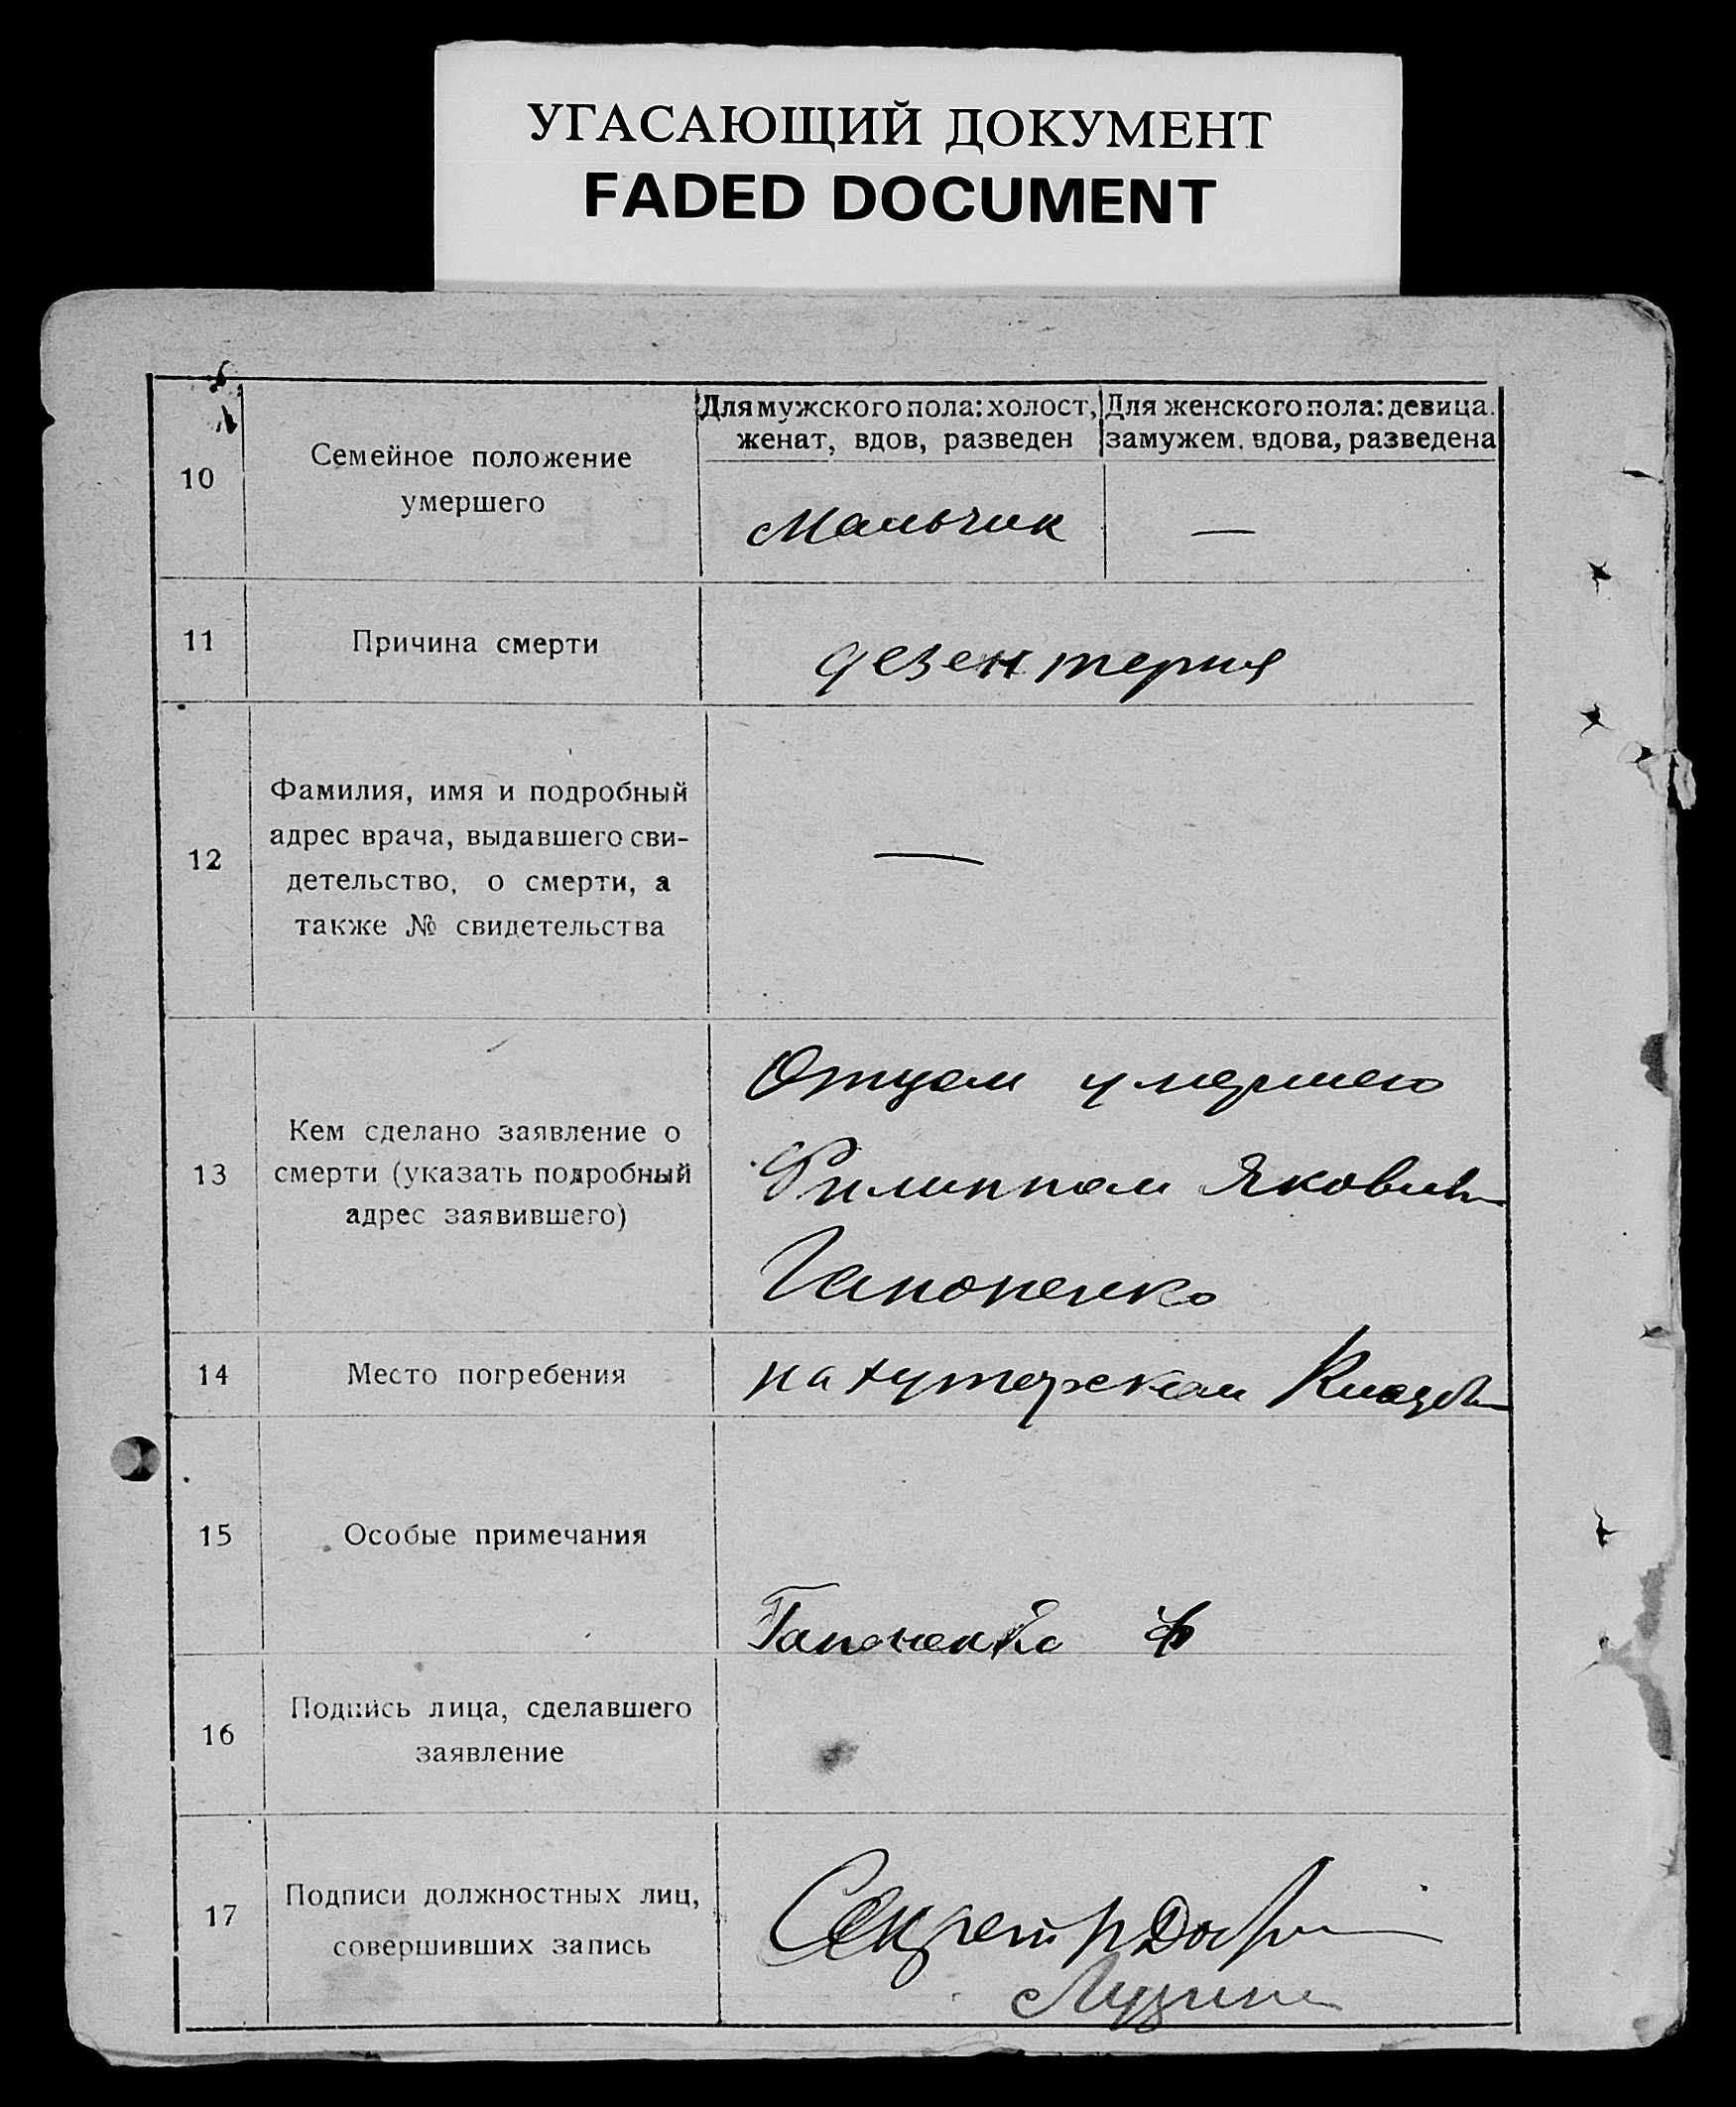 УГАСАЮЩИЙ ДОКУМЕНТ
FADED DOCUMENT
10
Семейное положение
умершего
Для мужского пола: холост,
женат, вдов, разведен
Для женского пола: девица.
замужем. вдова, разведена
Мальчик
—
11
Причина смерти
дезентерия
12
Фамилия, имя и подробный
адрес врача, выдавшего сви-
детельство, о смерти, а
также № свидетельства
—
13
Кем сделано заявление о
смерти (указать подробный
адрес заявившего)
Отцом умершего
Филиппом Яковлев
Гапоненко
14
Место погребения
на хуторском
15
Особые примечания
Гапоненко Ф
16
Подпись лица, сделавшего
заявление
17
Подписи должностных лиц,
совершивших запись